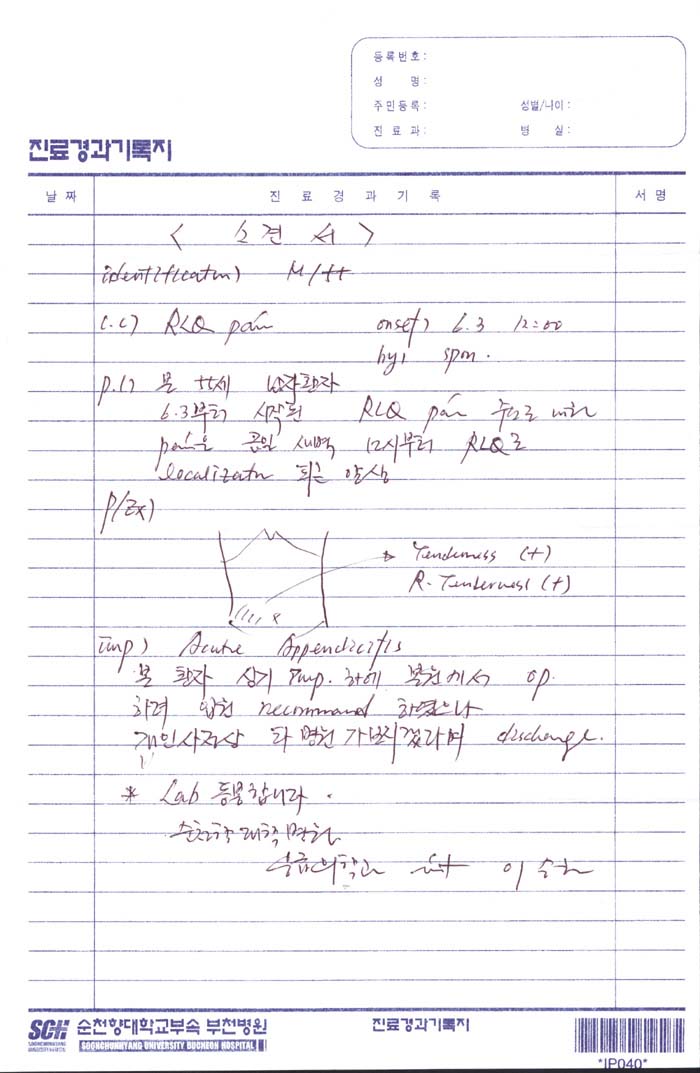 등록번호 :
성 명 :
주민등록 : 성별/나이 :
진 료 과 : 병 실 :
진료경과기록지
날 짜 진 료 경 과 기 록 서 명
< 소 견 서 >
identification) M/
C.C) RLQ pain onset) 6.3 12:00
by) spon.
P.I) 본 세 남자환자
6.3부터 시작된 RLQ pain 주소로 내원
pain은 금일 새벽 12시부터 RLQ로
localization 되는 양상
P/Ex)
Tenderness (+)
R. Tenderness (+)
Imp) Acute Appendicitis
본 환자 상기 Imp. 하에 본원에서 op.
하려 입원 recommand 하였으나
개인사정상 타 병원 가보시겠다하여 discharge.
* Lab 동봉합니다.
순천향 대학 병원
응급의학과
SCH 순천향대학교부속 부천병원 진료경과기록지
SOONCHUNHYANG UNIVERSITY BUCHEON HOSPITAL
*IP040*